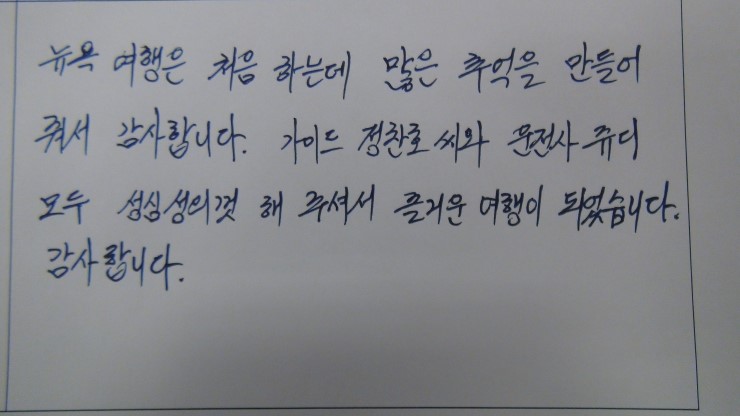 뉴욕 여행은 처음 하는데 많은 추억을 만들어
줘서 감사합니다. 가이드 정찬호씨와 운전사 쥬디
모두 성심성의껏 해 주셔서 즐거운 여행이 되었습니다.
감사합니다.